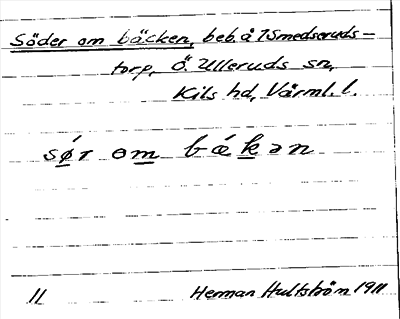 Söder om bäcken, beb. å 7 Smedseruds-
torp, Ö. Ulleruds sn,
Kils hd, Värml. l.
sǿr om bǽkən
11 Herman Hultström 1911